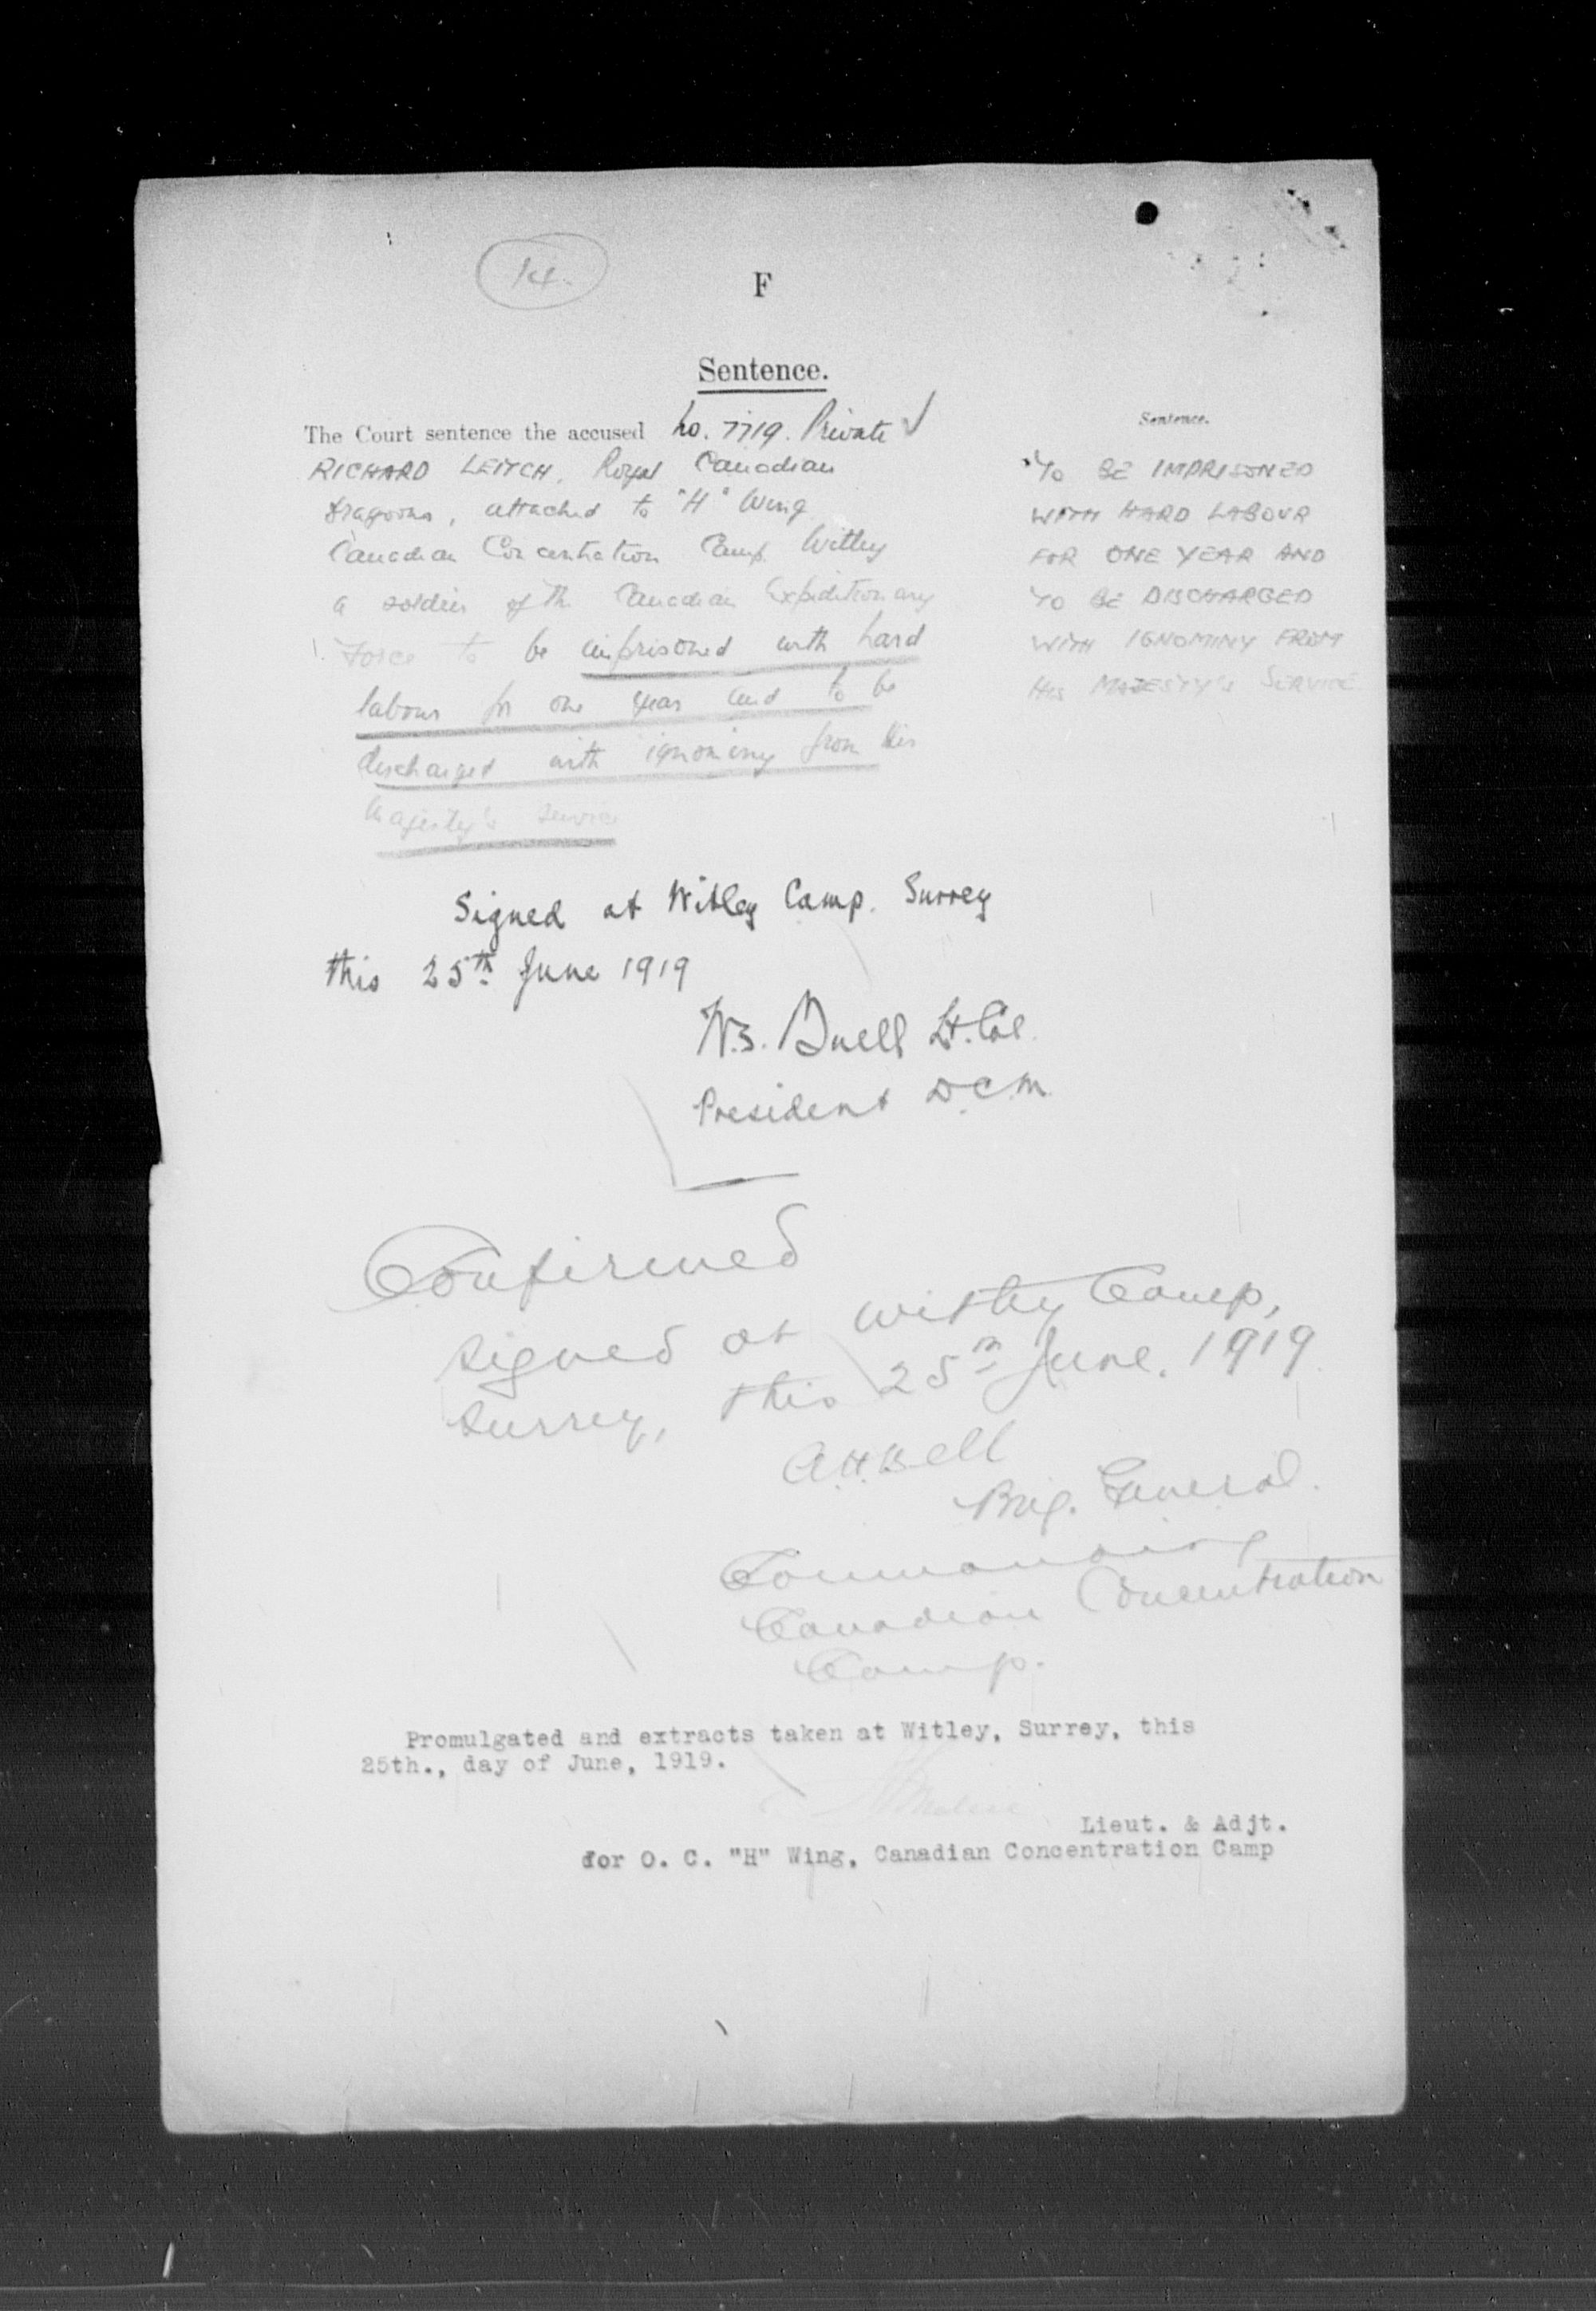 14.
F
Sentence.
The Court sentence the accused No. 7719. Private
RICHARD LEITCH, Royal Canadian
Dragoons, attached to "H" Wing
Canadian Concentration Camp Witley
a soldier of the Canadian Expeditionary
Force to be imprisoned with hard
labour for one year and to be
discharged with ignominy from his
Majesty's service
Sentence.
TO BE IMPRISONED
WITH HARD LABOUR
FOR ONE YEAR AND
TO BE DISCHARGED
WITH IGNOMINY FROM
HIS MAJESTY'S SERVICE
Signed at Witley Camp. Surrey
this 25th June 1919
W.S. Buell Lt. Col.
President D.C.M.
Confirmed
signed at Witley Camp,
Surrey, this 25th June. 1919.
A.H. Bell
Brig. General.
Commanding
Canadian Concentration
Camp.
Promulgated and extracts taken at Witley, Surrey, this
25th., day of June, 1919.
Lieut. & Adjt.
for O. C. "H" Wing, Canadian Concentration Camp